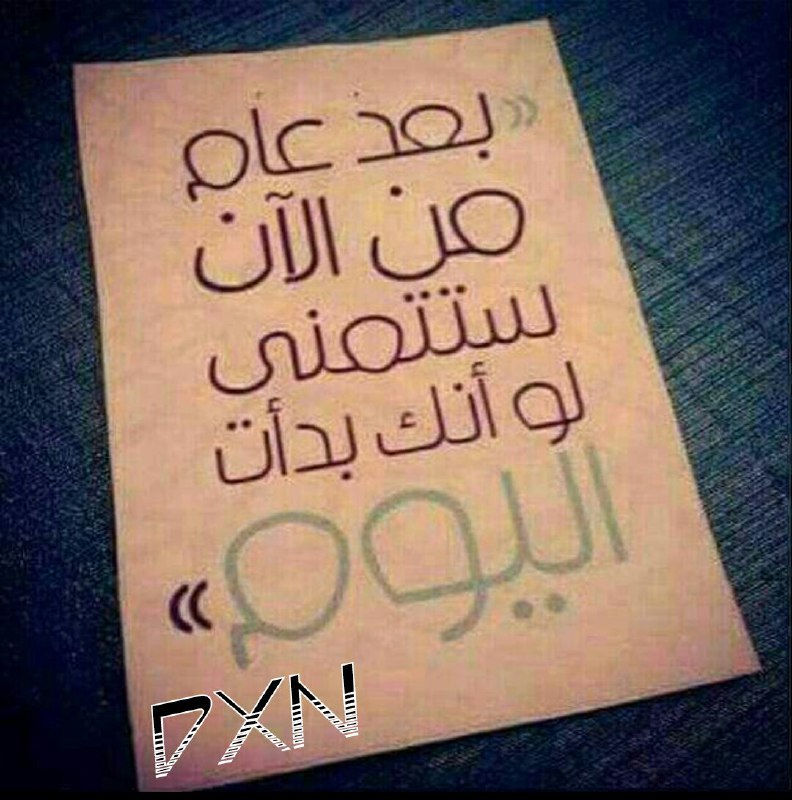 « بعد عام
من الآن
ستتمنى
لو أنك بدأت
اليوم »
DXN